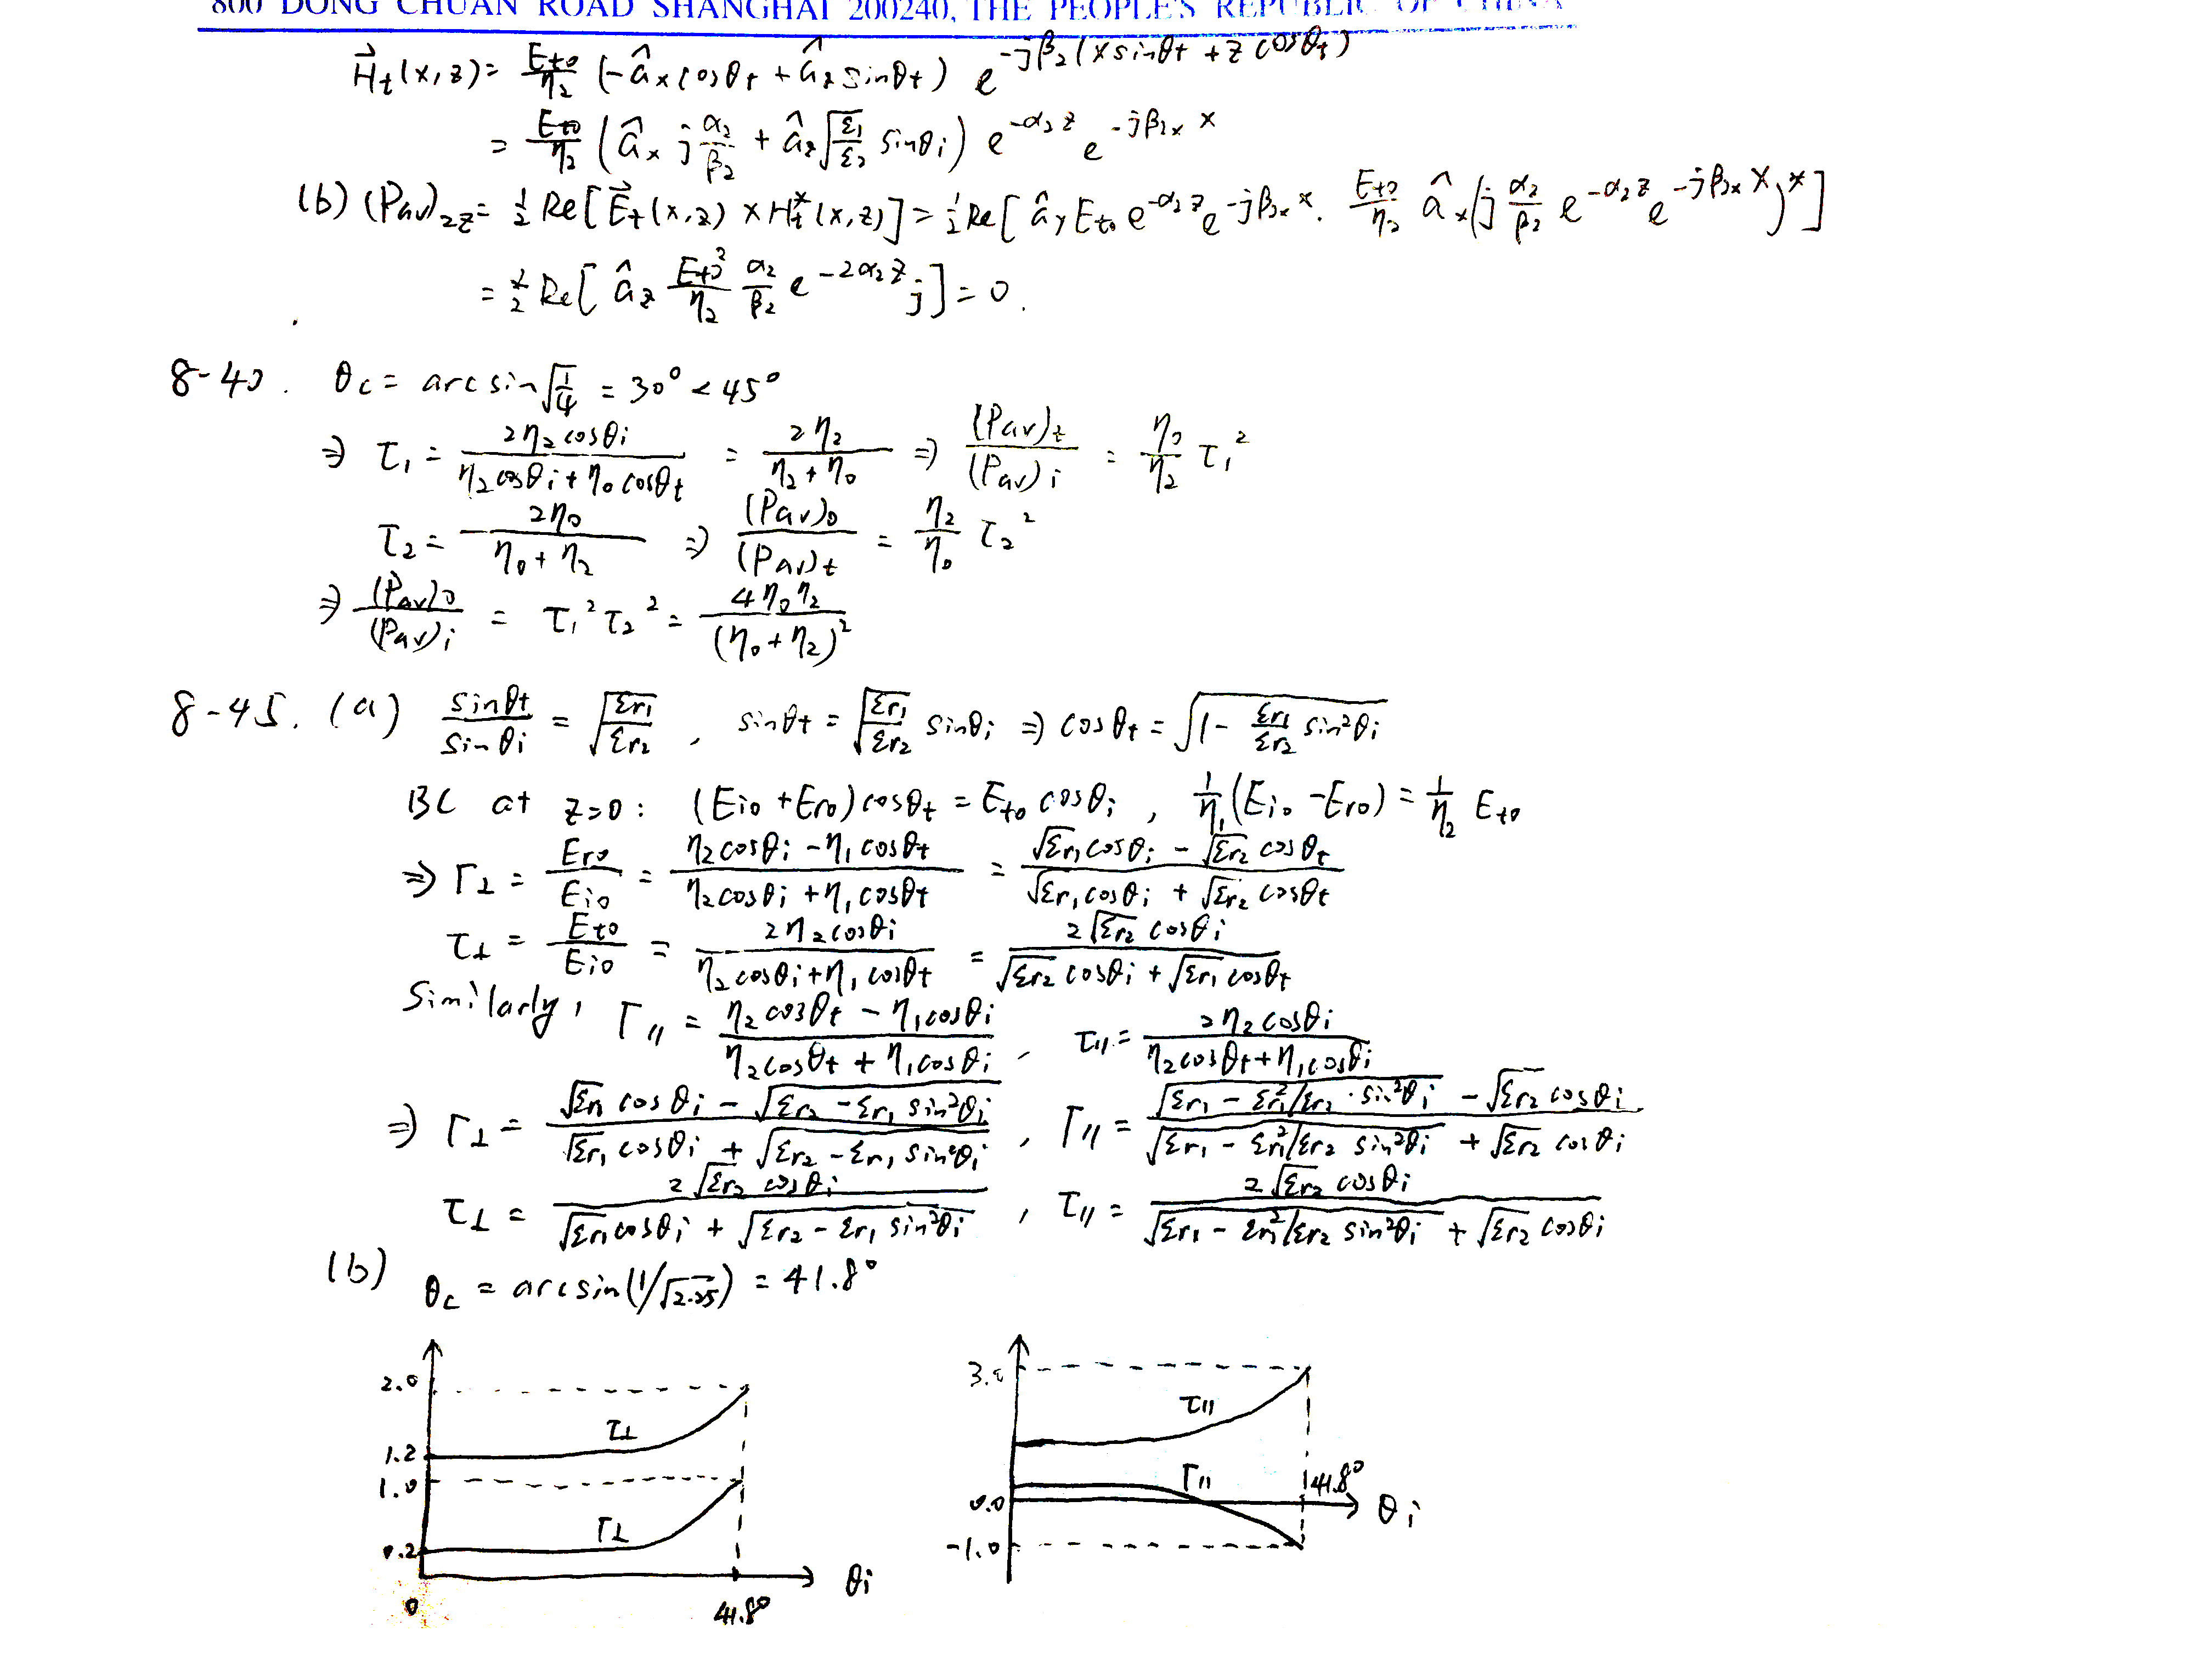 800 DONG CHUAN ROAD SHANGHAI 200240, THE PEOPLE'S REPUBLIC OF CHINA
H⃗t(x,z) = Et0/η2 (-âx cosθt + âz sinθt) e^{-jβ2(x sinθt + z cosθt)}
= Et0/η2 (âx j α2/β2 + âz √(ε1/ε2) sinθi) e^{-α2 z} e^{-jβ2x x}
(b) (Pav)2z = 1/2 Re[E⃗t(x,z) × Ht*(x,z)] = 1/2 Re[ây Et0 e^{-α2 z} e^{-jβ2x x} · Et0/η2 âx (j α2/β2 e^{-α2 z} e^{-jβ2x x})*]
= 1/2 Re[âz Et0²/η2 α2/β2 e^{-2α2 z} j] = 0.
8-40. θc = arcsin√(1/4) = 30° < 45°
⇒ τ1 = 2η2 cosθi / (η2 cosθi + η0 cosθt) = 2η2 / (η2 + η0) ⇒ (Pav)t / (Pav)i = η0/η2 τ1²
τ2 = 2η0 / (η0 + η2) ⇒ (Pav)0 / (Pav)t = η2/η0 τ2²
⇒ (Pav)0 / (Pav)i = τ1² τ2² = 4η0η2 / (η0 + η2)²
8-45. (a) sinθt / sinθi = √(εr1/εr2), sinθt = √(εr1/εr2) sinθi ⇒ cosθt = √(1 - εr1/εr2 sin²θi)
BC at z=0: (Ei0 + Er0) cosθt = Et0 cosθi, 1/η1 (Ei0 - Er0) = 1/η2 Et0
⇒ Γ⊥ = Er0/Ei0 = (η2 cosθi - η1 cosθt) / (η2 cosθi + η1 cosθt) = (√εr1 cosθi - √εr2 cosθt) / (√εr1 cosθi + √εr2 cosθt)
τ⊥ = Et0/Ei0 = 2η2 cosθi / (η2 cosθi + η1 cosθt) = 2√εr2 cosθi / (√εr2 cosθi + √εr1 cosθt)
Similarly, Γ∥ = (η2 cosθt - η1 cosθi) / (η2 cosθt + η1 cosθi), τ∥ = 2η2 cosθi / (η2 cosθt + η1 cosθi)
⇒ Γ⊥ = (√εr1 cosθi - √(εr2 - εr1 sin²θi)) / (√εr1 cosθi + √(εr2 - εr1 sin²θi)), Γ∥ = (√(εr1 - εr1²/εr2 · sin²θi) - √εr2 cosθi) / (√(εr1 - εr1²/εr2 sin²θi) + √εr2 cosθi)
τ⊥ = 2√εr2 cosθi / (√εr1 cosθi + √(εr2 - εr1 sin²θi)), τ∥ = 2√εr2 cosθi / (√(εr1 - εr1²/εr2 sin²θi) + √εr2 cosθi)
(b) θc = arcsin(1/√2.25) = 41.8°
2.0
τ⊥
1.2
1.0
Γ⊥
0.2
0
41.8°
θi
3.0
τ∥
Γ∥
41.8°
0.0
θi
-1.0